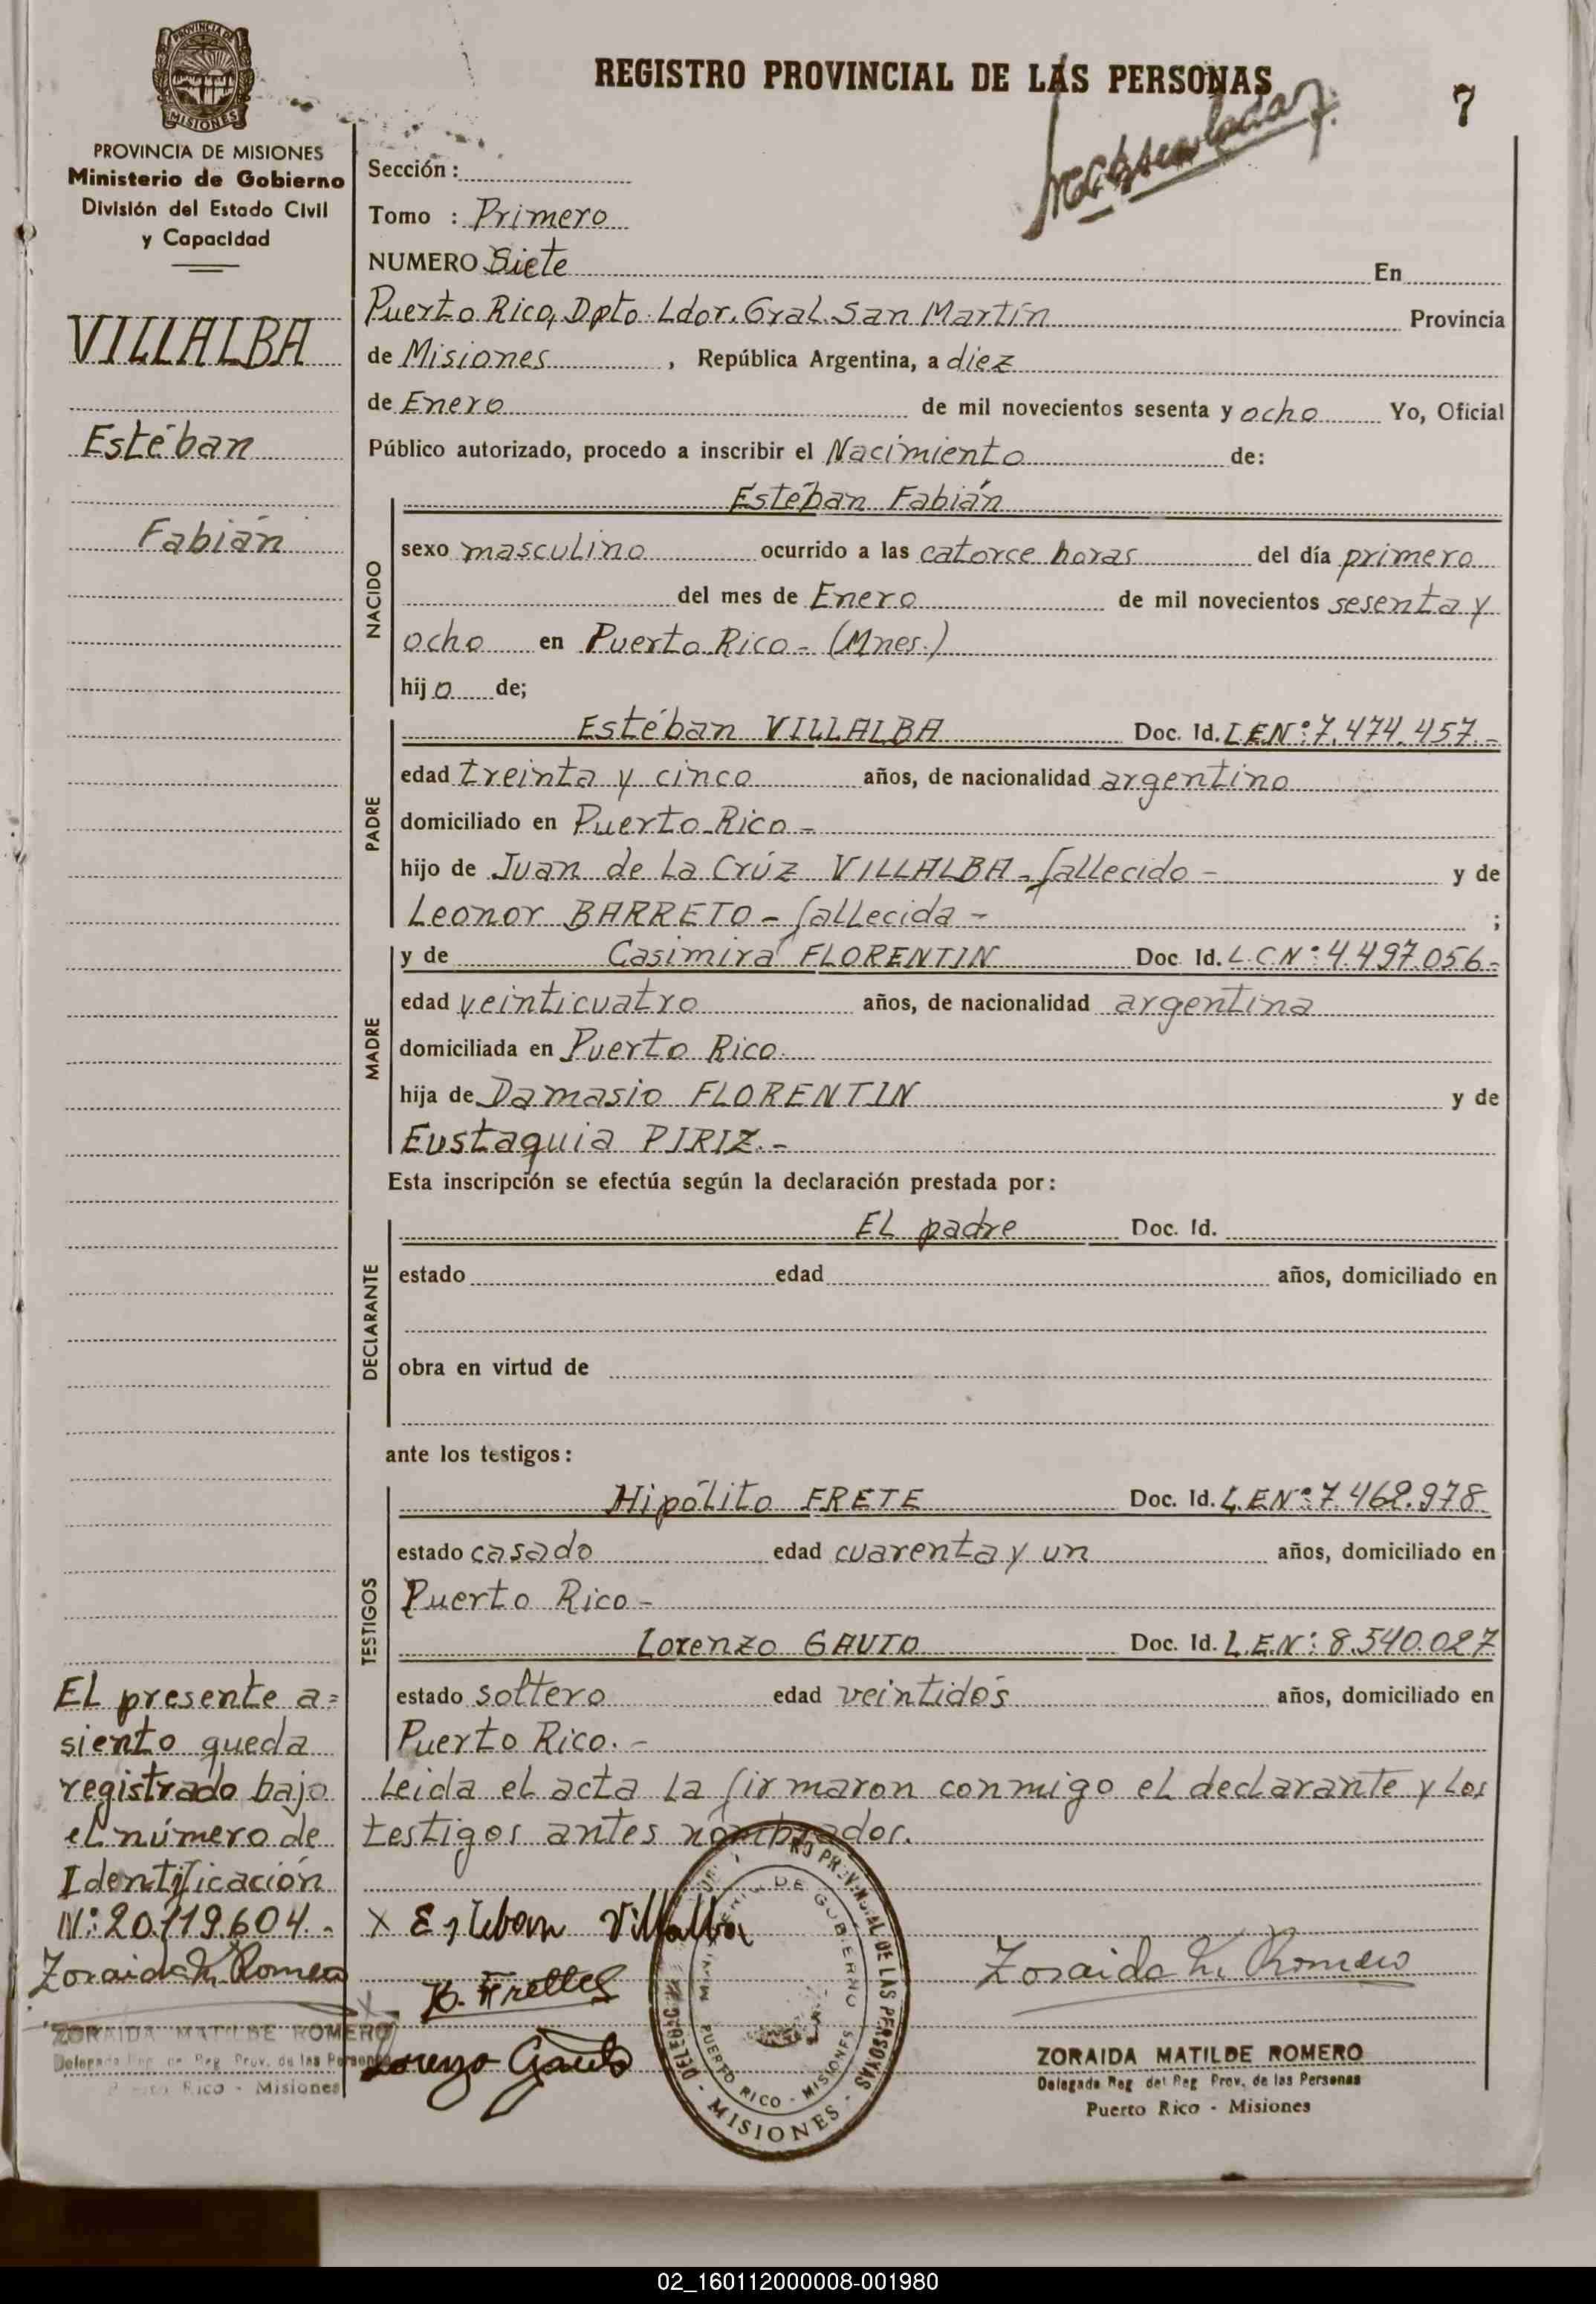 REGISTRO PROVINCIAL DE LAS PERSONAS
7
PROVINCIA DE MISIONES
Ministerio de Gobierno
División del Estado Civil
y Capacidad
VILLALBA
Estéban
Fabián
Sección :
Tomo : Primero
NUMERO Siete En
Puerto Rico, Dpto. Ldor. Gral. San Martín Provincia
de Misiones , República Argentina, a diez
de Enero de mil novecientos sesenta y ocho Yo, Oficial
Público autorizado, procedo a inscribir el Nacimiento de:
NACIDO
Estéban Fabián
sexo masculino ocurrido a las catorce horas del día primero
del mes de Enero de mil novecientos sesenta y
ocho en Puerto Rico - (Mnes.)
hijo de;
PADRE
Estéban VILLALBA Doc. Id. L.E.Nº: 7.474.457.-
edad treinta y cinco años, de nacionalidad argentino
domiciliado en Puerto Rico -
hijo de Juan de La Crúz VILLALBA - fallecido - y de
Leonor BARRETO - fallecida - ;
MADRE
y de Casimira FLORENTIN Doc. Id. L.C.Nº: 4.497.056-
edad veinticuatro años, de nacionalidad argentina
domiciliada en Puerto Rico.
hija de Damasio FLORENTIN y de
Eustaquia PIRIZ.-
Esta inscripción se efectúa según la declaración prestada por:
DECLARANTE
EL padre Doc. Id.
estado edad años, domiciliado en
obra en virtud de
ante los testigos:
TESTIGOS
Hipólito FRETE Doc. Id. L.E.Nº: 7.462.978
estado casado edad cuarenta y un años, domiciliado en
Puerto Rico -
Lorenzo GAUTO Doc. Id. L.E.Nº: 8.540.027
estado soltero edad veintidós años, domiciliado en
Puerto Rico. -
Leida el acta la firmaron conmigo el declarante y los
testigos antes nombrados.
EL presente a=
siento queda
registrado bajo
el número de
Identificación
Nº: 20.119.604.-
Zoraida M. Romero
ZORAIDA MATILDE ROMERO
Delegada Reg. del Reg. Prov. de las Personas
Puerto Rico - Misiones
X Esteban Villalba
H. Frette
Lorenzo Gauto
PROVINCIAL DE LAS PERSONAS
MISIONES
DE GOBIERNO
PUERTO RICO - MISIONES
Zoraida M. Romero
ZORAIDA MATILDE ROMERO
Delegada Reg del Reg Prov. de las Personas
Puerto Rico - Misiones
02_160112000008-001980